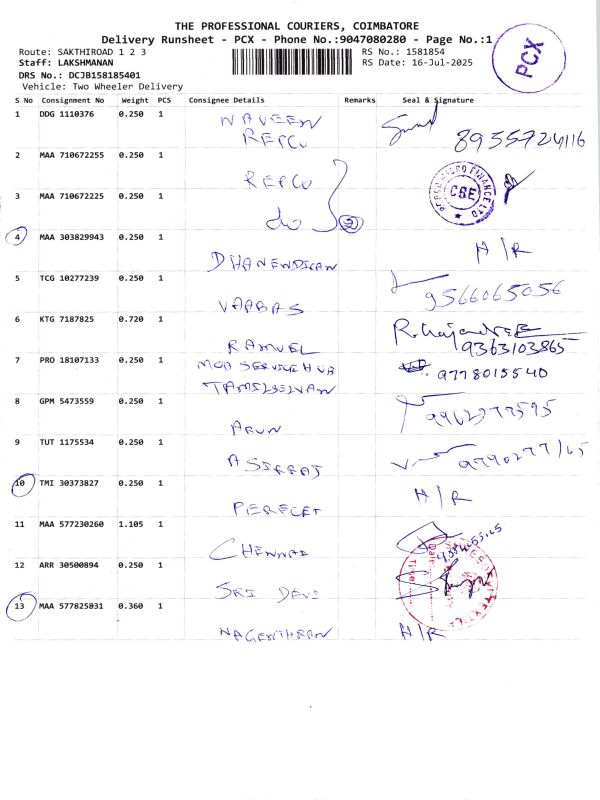 THE PROFESSIONAL COURIERS, COIMBATORE
Delivery Runsheet - PCX - Phone No.:9047080280 - Page No.:1
Route: SAKTHIROAD 1 2 3 RS No.: 1581854
Staff: LAKSHMANAN RS Date: 16-Jul-2025
DRS No.: DCJB158185401
Vehicle: Two Wheeler Delivery
PCX
S No Consignment No Weight PCS Consignee Details Remarks Seal & Signature
1 DDG 1110376 0.250 1 NAVEEN
REPCO 8955724116
2 MAA 710672255 0.250 1 REPCO
3 MAA 710672225 0.250 1 do CBE
4 MAA 303829943 0.250 1 H/R
5 TCG 10277239 0.250 1 9566065056
6 KTG 7187825 0.720 1 9363103865
7 PRO 18107133 0.250 1 9778015540
TAMILSELVAN
8 GPM 5473559 0.250 1 ARUN
9 TUT 1175534 0.250 1
10 TMI 30373827 0.250 1 H/R
11 MAA 577230260 1.105 1 CHENNAI
12 ARR 30500894 0.250 1 SRI DEVI
13 MAA 577825831 0.360 1 NAGENTHRAN H/R